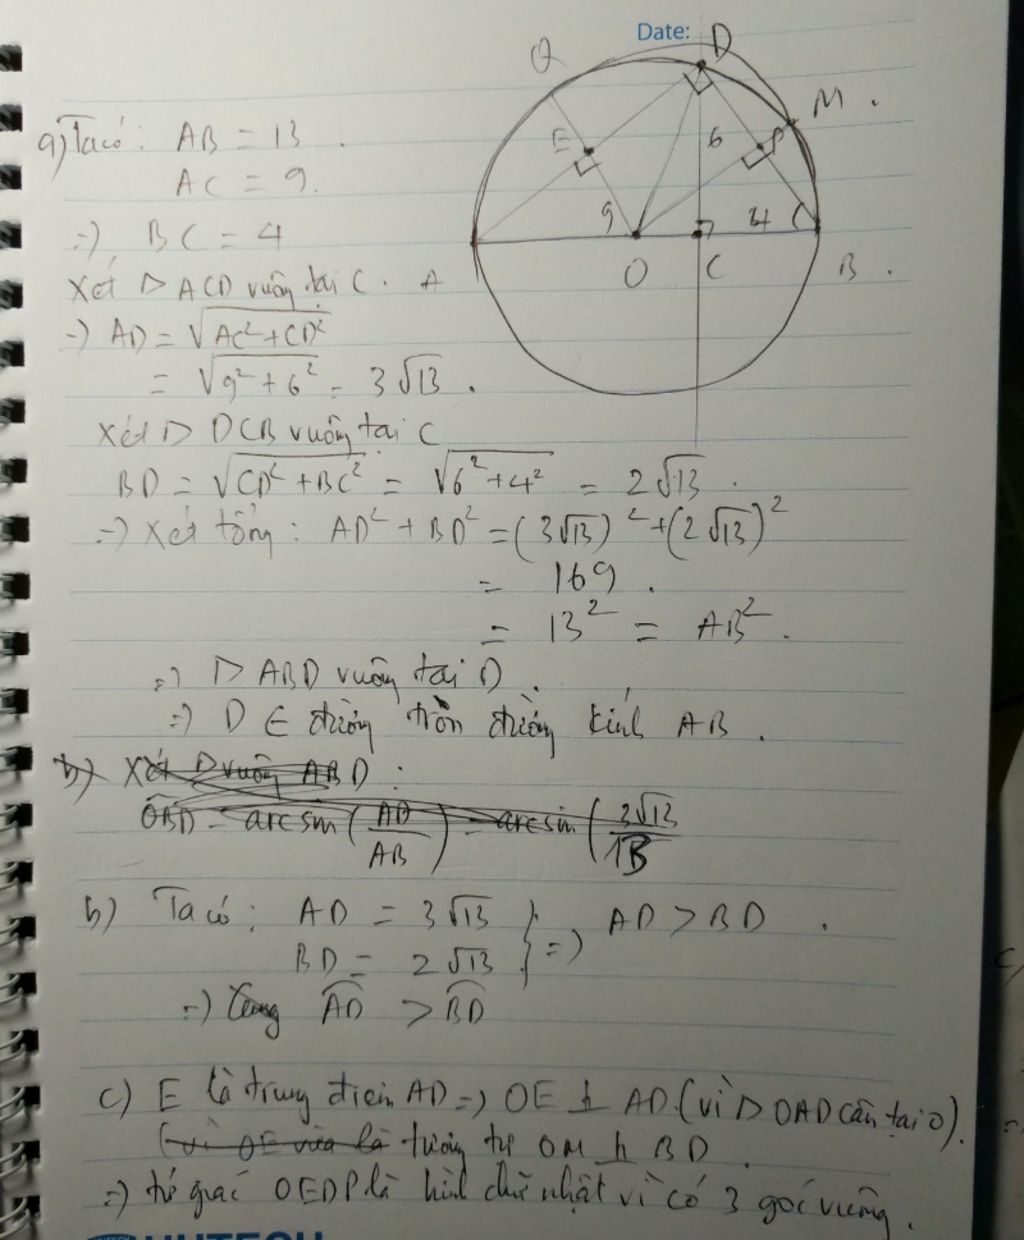 Date:
D
Q
M.
E
6
P
9
4
O
C
B.
A
a) Ta có: AB = 13.
AC = 9.
=) BC = 4
Xét ▷ ACD vuông tại C.
=) AD = √(AC² + CD²)
= √(9² + 6²) = 3√13.
Xét ▷ DCB vuông tại C
BD = √(CD² + BC²) = √(6² + 4²) = 2√13.
=) Xét tổng: AD² + BD² = (3√13)² + (2√13)²
= 169.
= 13² = AB².
=) ▷ ABD vuông tại D.
=) D ∈ đường tròn đường kính AB.
b) Xét ▷ vuông ABD:
OBD = arcsin(AD/AB) = arcsin(3√13/13
b) Ta có: AD = 3√13 } =) AD > BD.
BD = 2√13
=) AD > BD
c) E là trung điểm AD =) OE ⊥ AD. (vì ▷ OAD cân tại O).
(vì OE vừa là tương tự OM ⊥ BD.
=) tứ giác OEDP là hình chữ nhật vì có 3 góc vuông.
HUTECH